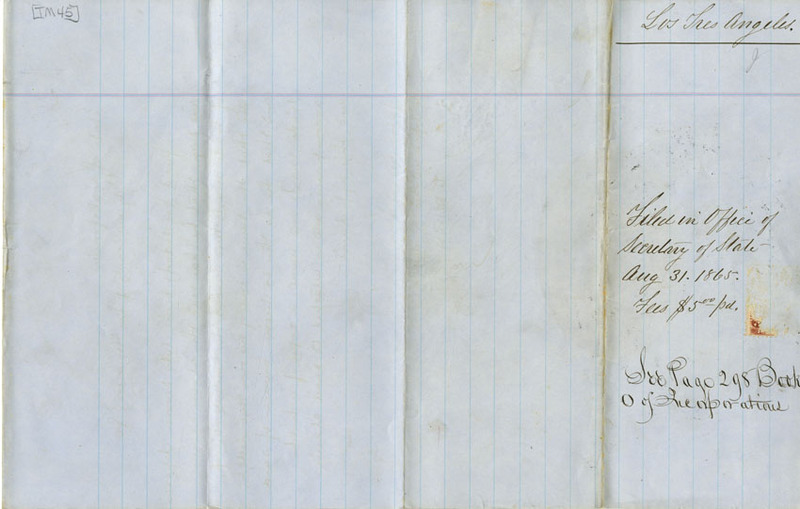 [IM45]
Los Tres Angeles.
Filed in Office of
Secretary of State
Aug 31. 1865.
Fees $5.00 pd.
See Page 298 Book
O of Incorporations